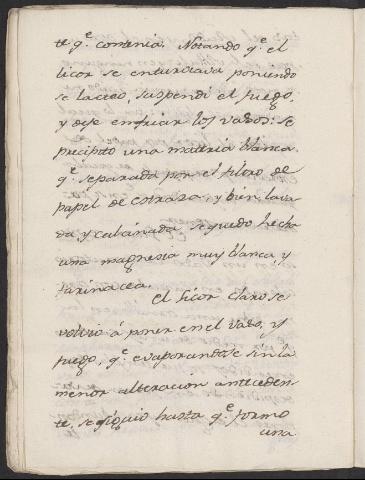 te q.e contenia. Notando q.e el
licor se enturviava poniendo
se lacteo, suspendi el fuego,
y deje enfriar los vasos: se
precipitó una materia blanca,
q.e separada por el filtro de
papel de estraza, y bien lava
da y calcinada se quedo hecha
una magnesia muy blanca, y
farinacea.
El licor claro se
volvio á poner en el vaso, y
fuego, q.e evaporandose sin la
menor alteracion anteceden-
te, se siguio hasta q.e formo
una